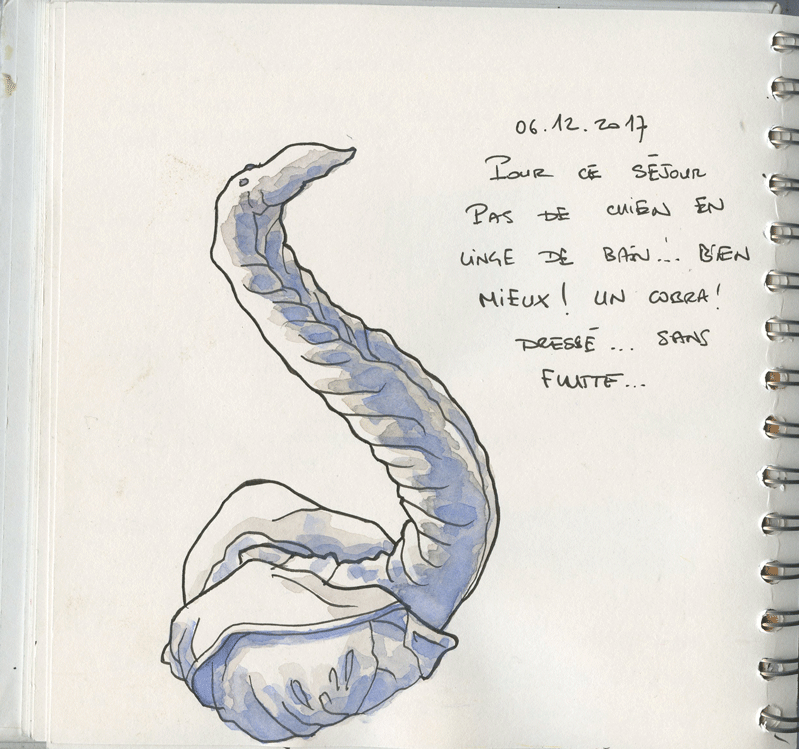 06.12.2017
POUR CE SÉJOUR
PAS DE CHIEN EN
LINGE DE BAIN... BIEN
MIEUX! UN COBRA!
DRESSÉ... SANS
FLUTTE...